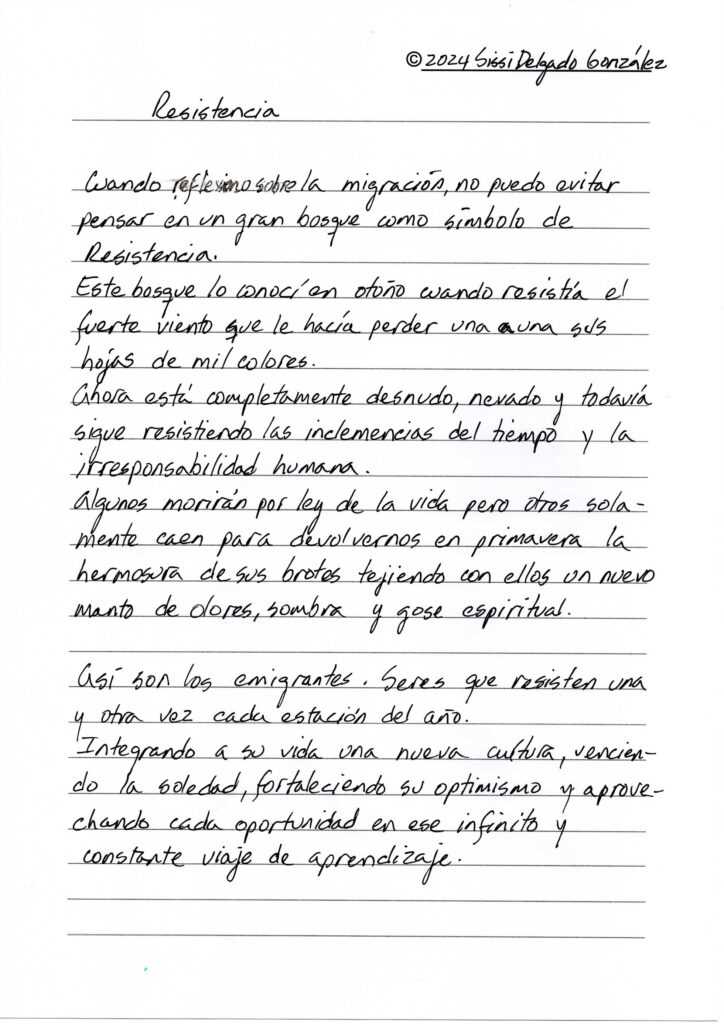 ©2024 Sissi Delgado González
Resistencia
Cuando reflexiono sobre la migración, no puedo evitar
pensar en un gran bosque como símbolo de
Resistencia.
Este bosque lo conocí en otoño cuando resistía el
fuerte viento que le hacía perder una a una sus
hojas de mil colores.
Ahora está completamente desnudo, nevado y todavía
sigue resistiendo las inclemencias del tiempo y la
irresponsabilidad humana.
Algunos morirán por ley de la vida pero otros sola-
mente caen para devolvernos en primavera la
hermosura de sus brotes tejiendo con ellos un nuevo
manto de olores, sombra y gose espiritual.
Así son los emigrantes. Seres que resisten una
y otra vez cada estación del año.
Integrando a su vida una nueva cultura, vencien-
do la soledad, fortaleciendo su optimismo y aprove-
chando cada oportunidad en ese infinito y
constante viaje de aprendizaje.